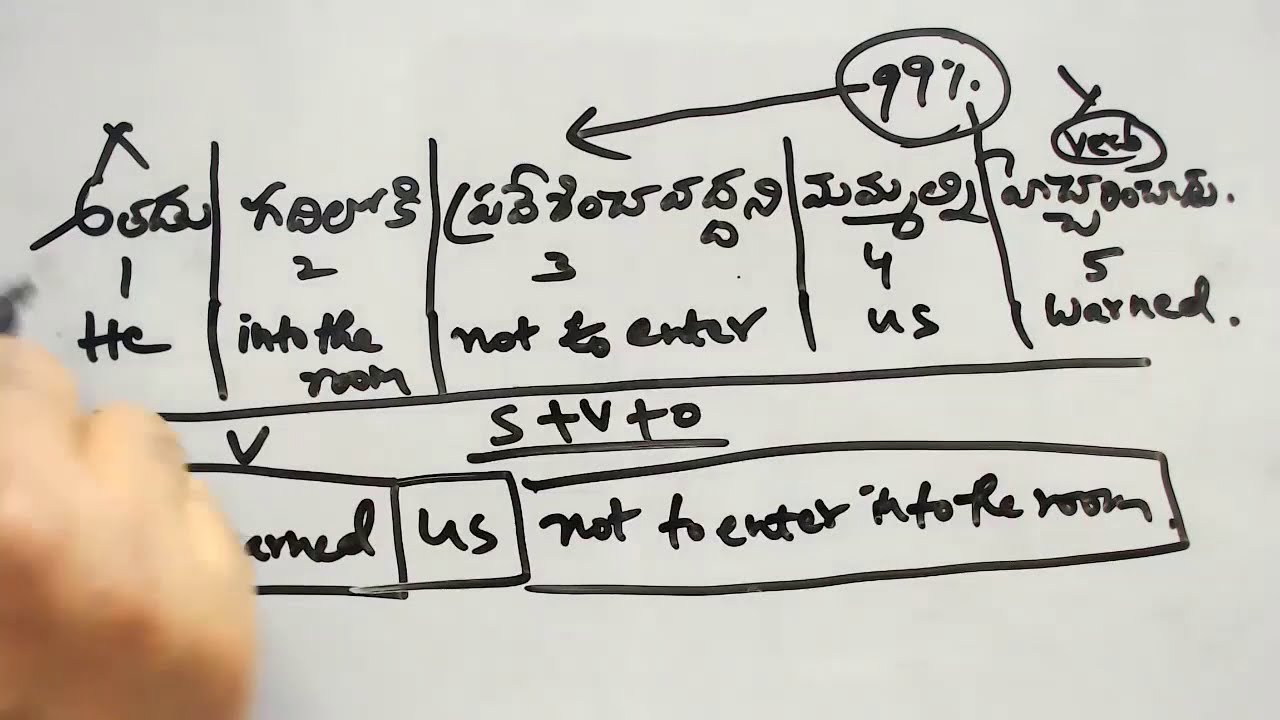 99%.
verb
అతడు గదిలోకి ప్రవేశించవద్దని మమ్మల్ని హెచ్చరించాడు.
1 2 3 4 5
He into the room not to enter us warned.
S + V + O
V
arned us not to enter into the room.